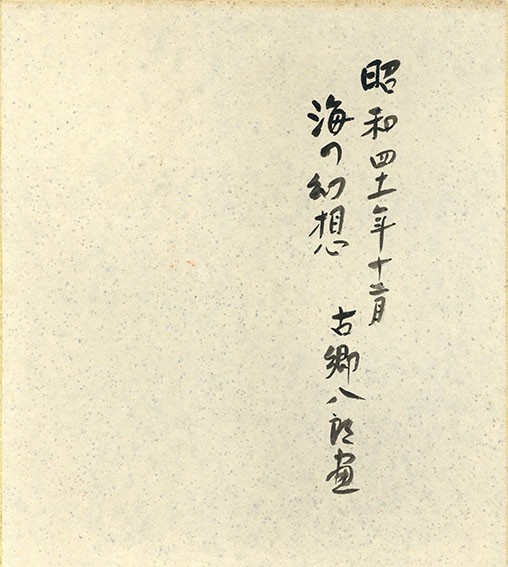 昭和四十一年十二月
海の幻想
古郷八郎画